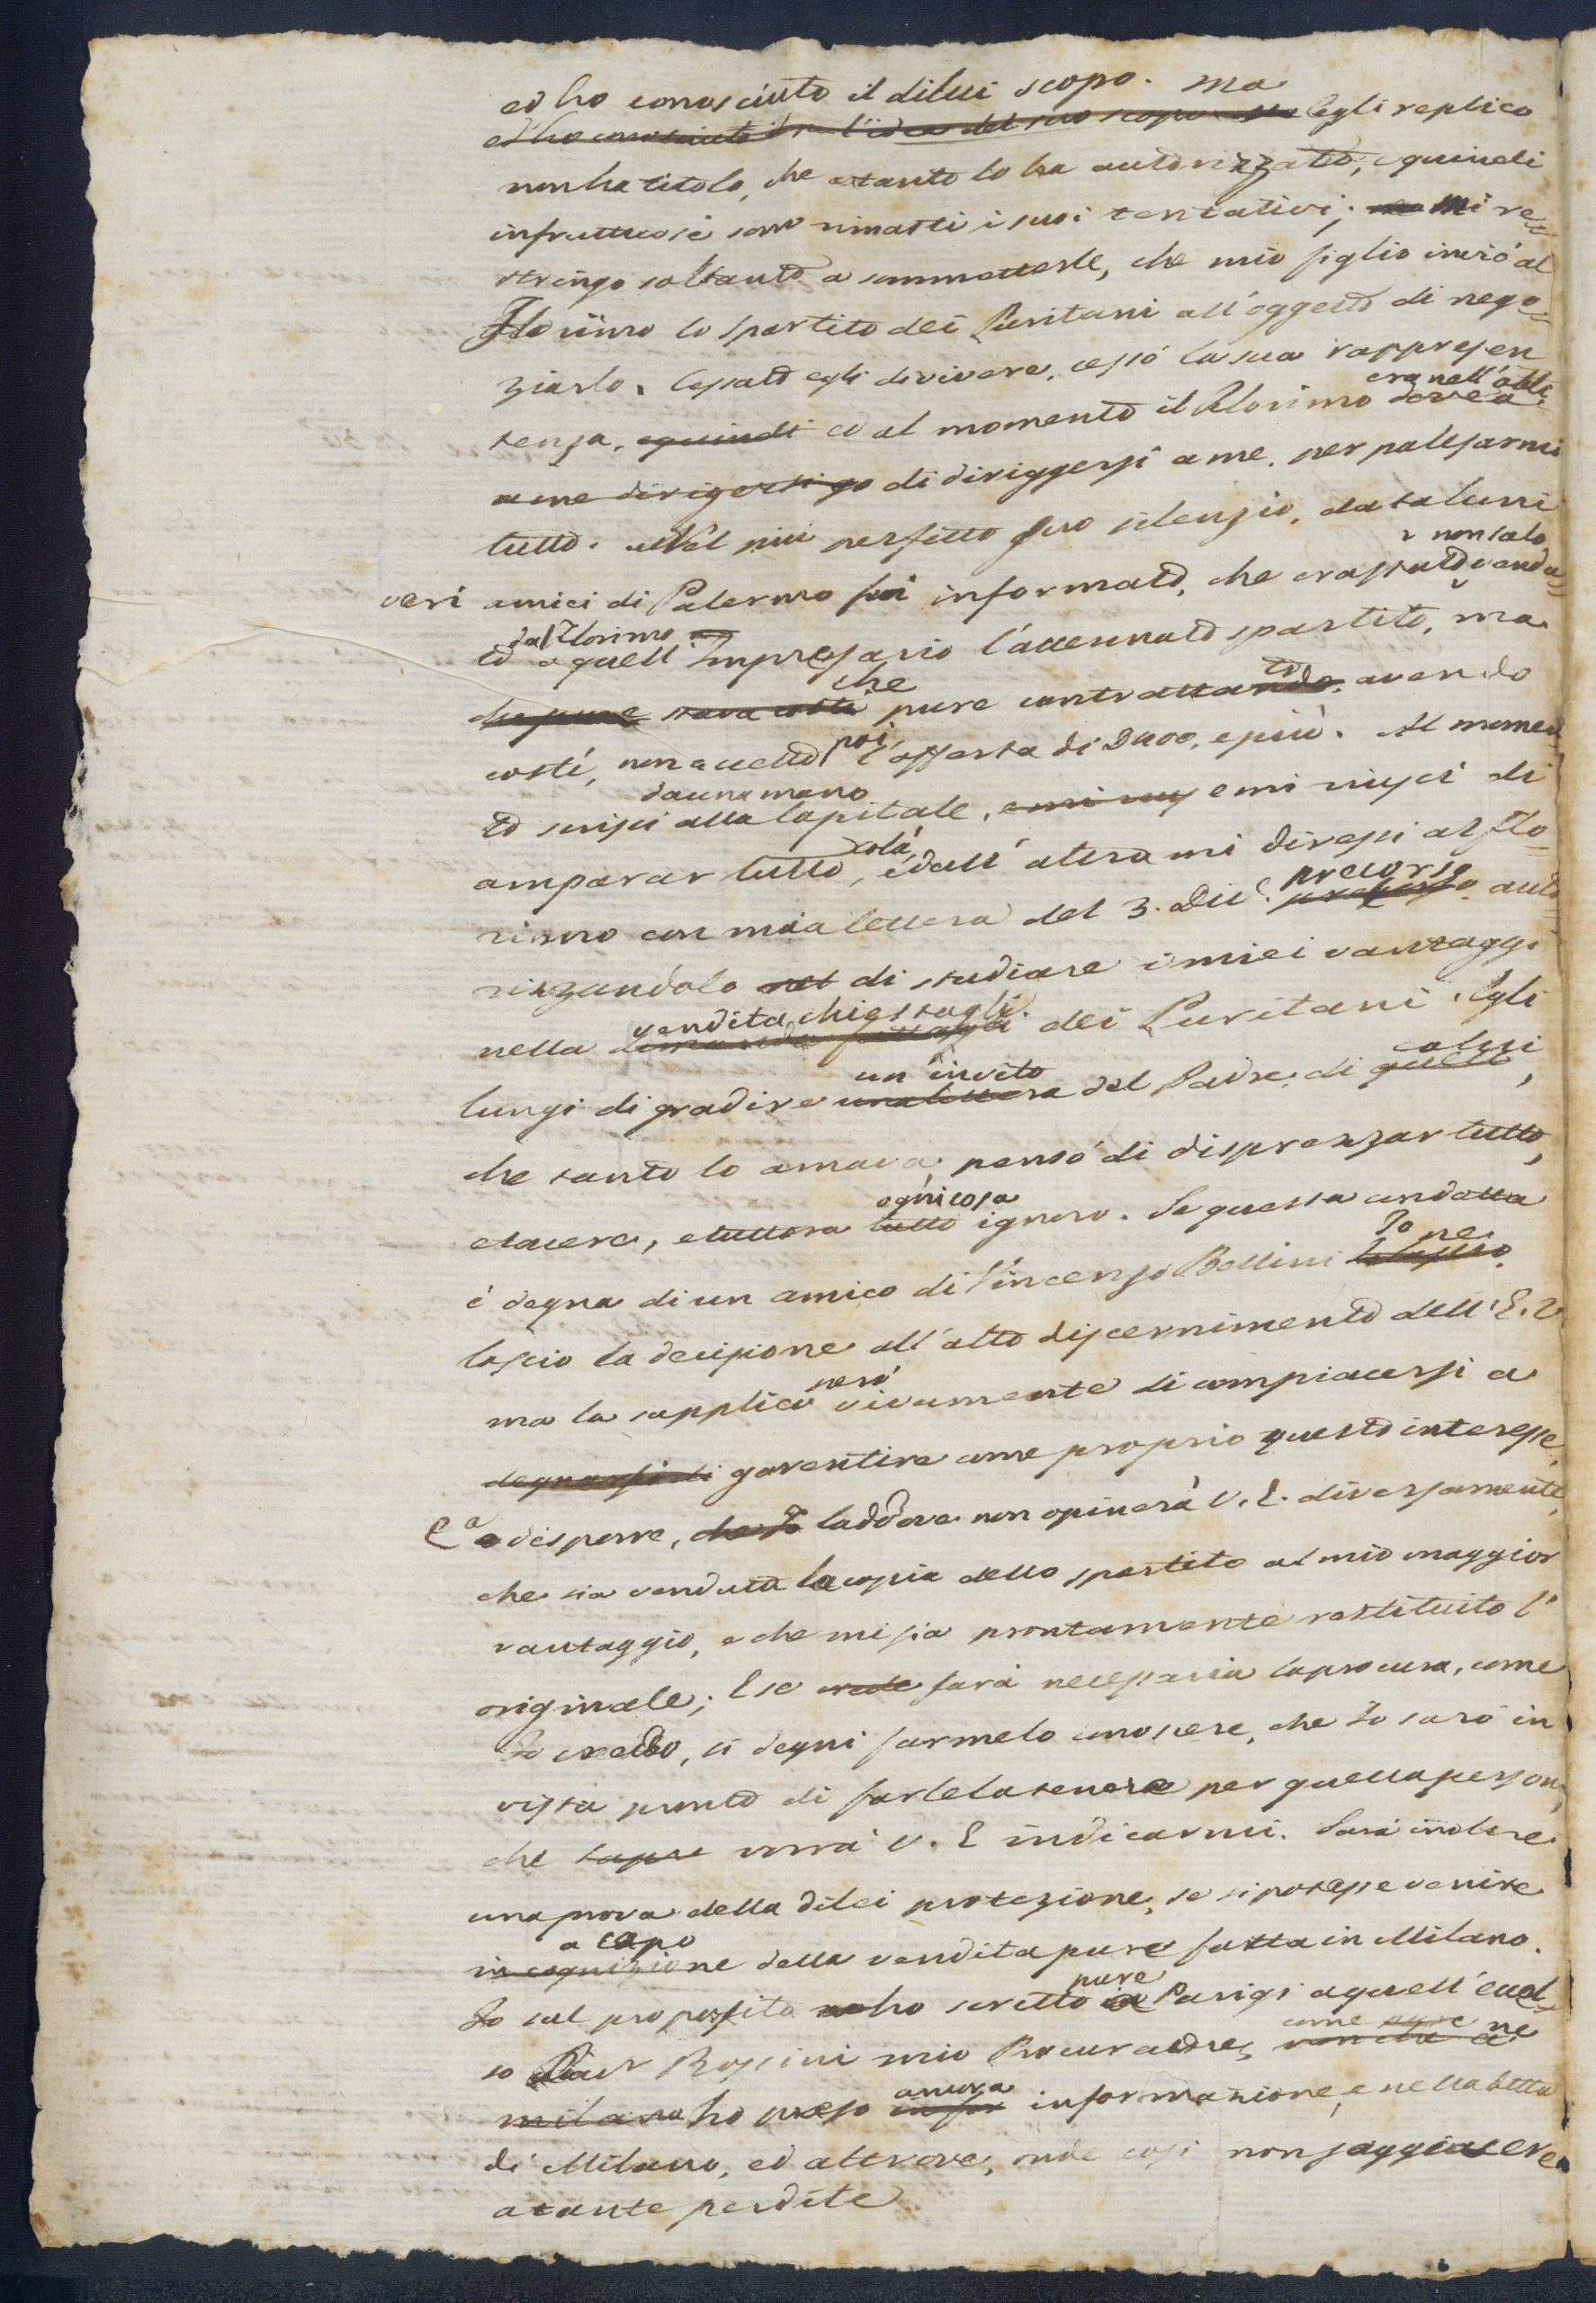 ed ho conosciuto il dilui scopo. ma
ed ho conosciuto l'idea del suo scopo ma Egli replico
non ha titolo, che atanto lo ha autorizzato, e quindi
infruttuosi sono rimasti i suoi tentativi; mi re=
stringo soltanto a sommetterle, che mio figlio inviò al
Florimo lo spartito dei Puritani all'oggetto di nego=
ziarlo. Cessato egli di vivere, cessò la sua rappresen
era nell'obbli
tenza, equindi ed al momento il Florimo dovea
a me dirigersi di diriggersi a me, per palesarmi
tutto. Nel più perfetto suo silenzio, da taluni
non solo
veri amici di Palermo fui informato, che era stato vendu=
dal Florimo
to a quell'Impresario l'accennato spartito, ma
che
che pure stava costì pure contrattando, avendo
to
poi
costì, non accettò l'offerta di D400, e più. Al momen
da una mano
to scrissi alla Capitale, e mi riuscì di
colà
amparar tutto, e dall'altra mi diressi al Flo=
precorso
rimo con mia lettera del 3. Dic.e autò
rizzandolo di studiare i miei vantaggi
vendita chiestagli
nella dei Puritani. Egli
un invito
colui
lungi di gradire una lettera del Padre di quello,
che tanto lo amava, pensò di disprezzar tutto,
ognicosa
etacere, etuttora tutto ignoro. Se questa condotta
Io ne
è degna di un amico di Vincenzo Bellini
lascio la decisione all'alto discernimento dell'E. V
però
ma la supplico vivamente di compiacersi a
degnarsi di garentire come proprio questo interesse,
e a disporre, che Io laddove non opinerà V. E. diversamente,
che sia venduta la copia dello spartito al mio maggior
vantaggio, e che mi sia prontamente restituito l'
originale; E se crede sarà necessaria la procura, come
Io credo, si degni farmelo conoscere, che Io sarò in
vista pronto di farlela tenere per quella persona,
che vorrà V. E indicarmi. Sarà inoltre
una prova della dilei protezione, se si potesse venire
a capo
in cognizione della vendita pure fatta in Milano.
pure
Io sul proposito ho scritto a Parigi a quell'eccel=
come ne
so Rossini mio Procuratore,
ancora
milano ho preso infor informazione, e nella detta
di Milano, ed altrove, onde così non soggiacere
a tante perdite